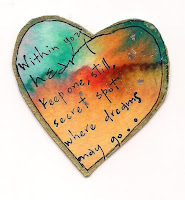 Within your
heart
keep one, still,
secret spot
where dreams
may go...